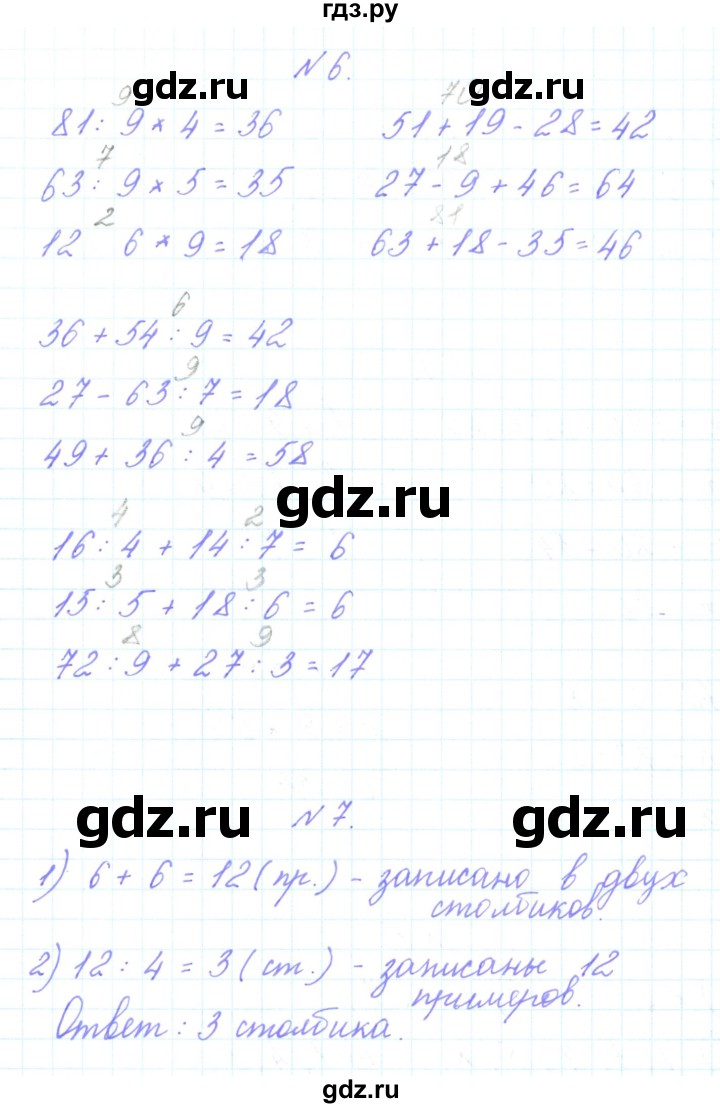 гдз.ру
N 6.
gdz.ru gdz.ru
9 70
81 : 9 × 4 = 36 51 + 19 - 28 = 42
7 18
63 : 9 × 5 = 35 27 - 9 + 46 = 64
2 81
12 6 × 9 = 18 63 + 18 - 35 = 46
6
36 + 54 : 9 = 42
9
27 - 63 : 7 = 18
9
49 + 36 : 4 = 58
gdz.ru
4 2
16 : 4 + 14 : 7 = 6
3 3
15 : 5 + 18 : 6 = 6
8 9
72 : 9 + 27 : 3 = 17
gdz.ru N 7. gdz.ru
1) 6 + 6 = 12 (пр.) - записано в двух
столбиков.
2) 12 : 4 = 3 (ст.) - записаны 12
примеров.
Ответ : 3 столбика.
gdz.ru